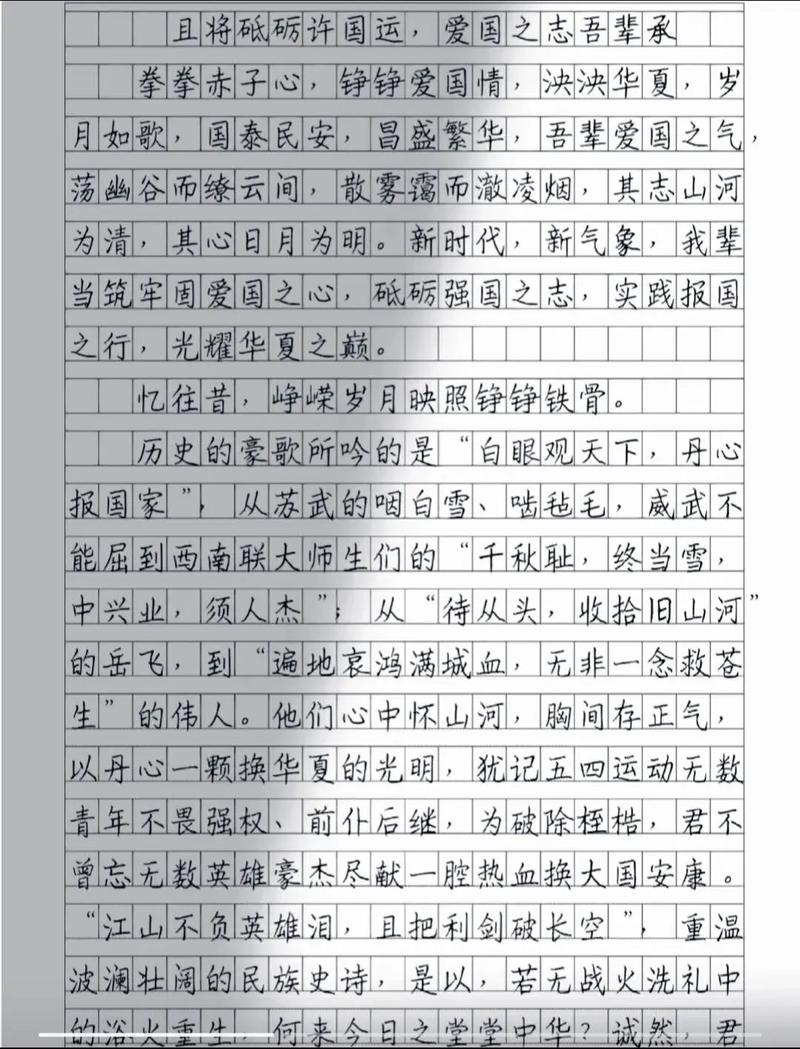 且将砥砺许国运，爱国之志吾辈承
拳拳赤子心，铮铮爱国情，泱泱华夏，岁
月如歌，国泰民安，昌盛繁华，吾辈爱国之气，
荡幽谷而缭云间，散雾霭而澈凌烟，其志山河
为清，其心日月为明。新时代，新气象，我辈
当筑牢固爱国之心，砥砺强国之志，实践报国
之行，光耀华夏之巅。
忆往昔，峥嵘岁月映照铮铮铁骨。
历史的豪歌所吟的是“白眼观天下，丹心
报国家”，从苏武的咽白雪、啮毡毛，威武不
能屈到西南联大师生们的“千秋耻，终当雪，
中兴业，须人杰”；从“待从头，收拾旧山河”
的岳飞，到“遍地哀鸿满城血，无非一念救苍
生”的伟人。他们心中怀山河，胸间存正气，
以丹心一颗换华夏的光明，犹记五四运动无数
青年不畏强权、前仆后继，为破除桎梏，君不
曾忘无数英雄豪杰尽献一腔热血换大国安康。
“江山不负英雄泪，且把利剑破长空”，重温
波澜壮阔的民族史诗，是以，若无战火洗礼中
的浴火重生，何来今日之堂堂中华？诚然，君